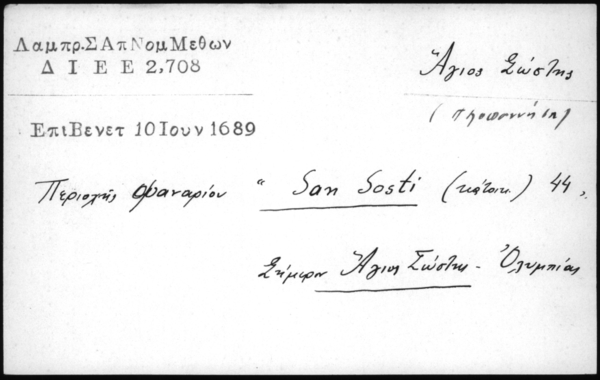 Λαμπρ.ΣΑπΝομΜεθων
Δ Ι Ε Ε 2,708
Ἅγιος Σώστης
(Πελοποννήσου)
ΕπιΒενετ 10 Ιουν 1689
Περιοχῆς Φαναρίου " San Sosti (κάτοικ.) 44,
Σήμερον Ἅγιος Σώστης - Ὀλυμπίας